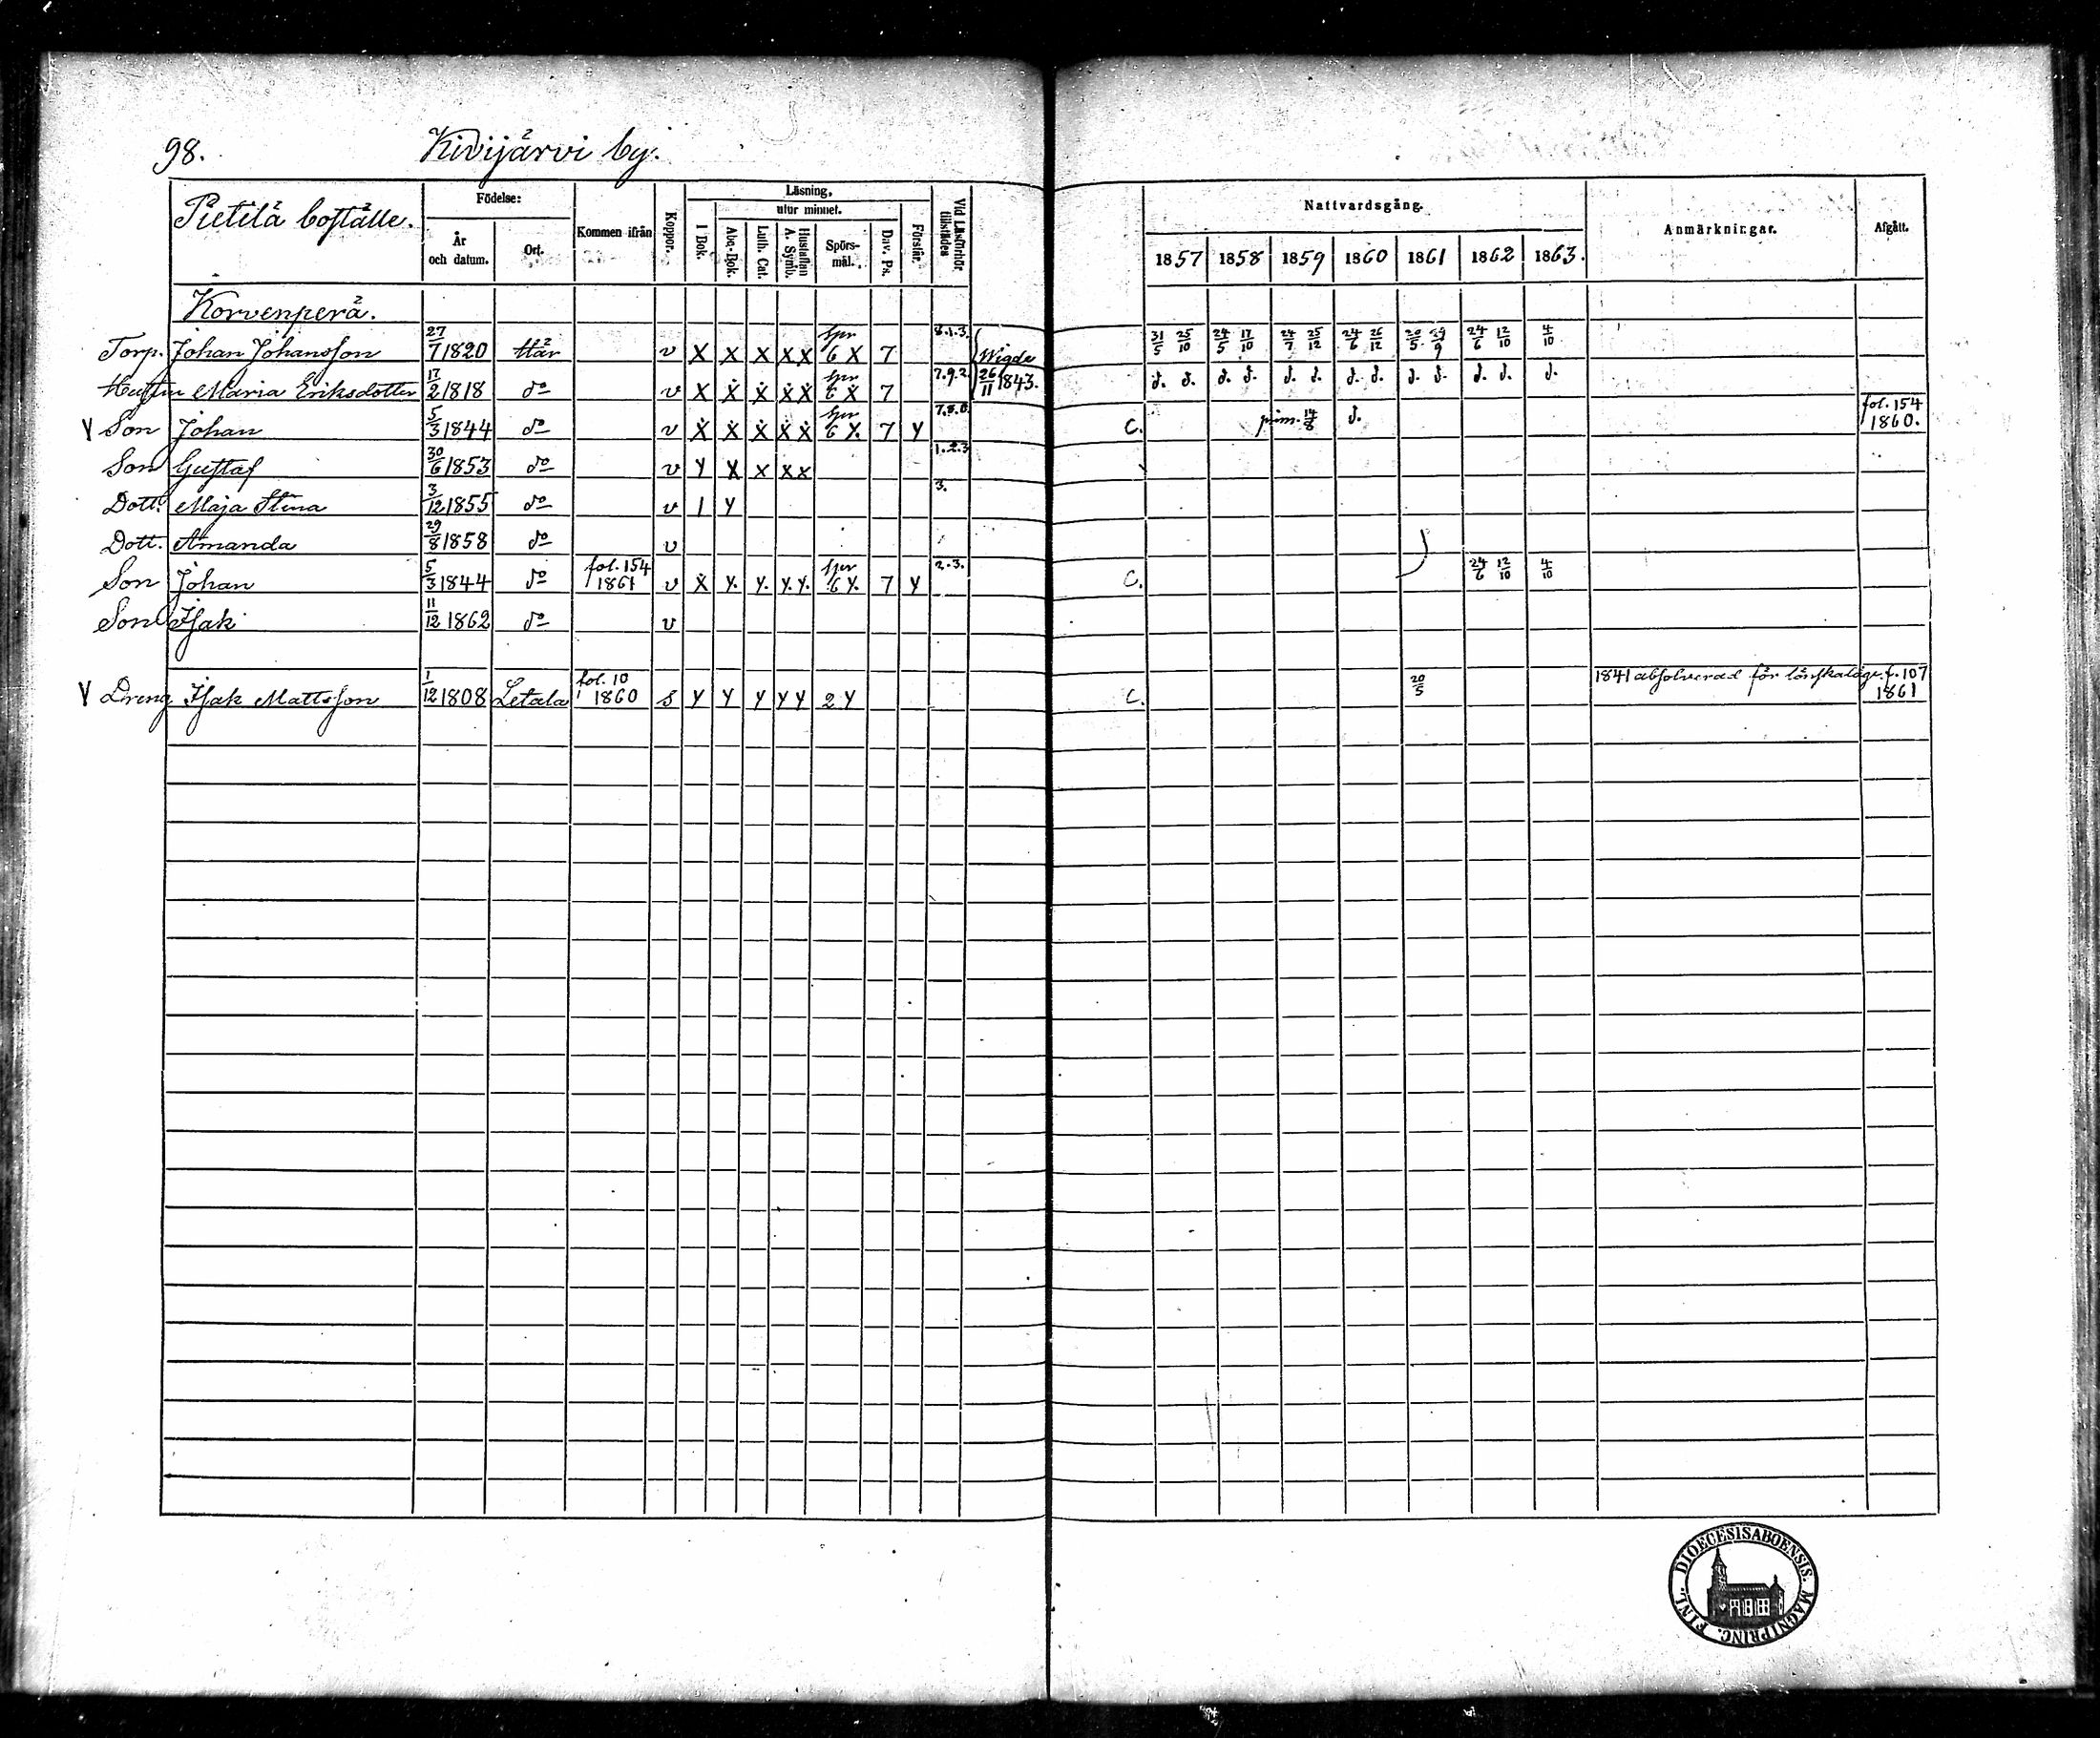 98. Kivijärvi by.
Pietilä boställe.
Födelse: År och datum. Ort. Kommen ifrån Koppor. Läsning, I Bok. utur minnet. Abc-Bok. Luth. Cat. Hustaflan A. Symb. Spörs-mål. Dav. Ps. Förstår. Vid Läsförhör tillstädes
Nattvardsgång. 1857 1858 1859 1860 1861 1862 1863. Anmärkningar. Afgått.
Korvenperä.
Torp. Johan Johansson 27/7 1820 Här v X X X X X Spr 6 X 7 8.1.3. Wigde 31/5 25/10 24/5 17/10 24/7 25/12 24/6 26/12 20/5 29/9 24/6 12/10 4/10
Hustru Maria Eriksdotter 17/2 1818 do v X X X X X Spr 6 X 7 7.9.2. 26/11 1843. d. d. d. d. d. d. d. d. d. d. d. d. d.
Y Son Johan 5/3 1844 do v X X X X X Spr 6 X. 7 Y 7.8.0. C. prim. 14/8 d. fol. 154 1860.
Son Gustaf 30/6 1853 do v Y X X X X 1.2.3
Dott. Maja Stina 3/12 1855 do v I Y 3.
Dott. Amanda 29/8 1858 do v
Son Johan 5/3 1844 do fol. 154 1861 v X Y. Y. Y. Y. Spr 6 Y. 7 Y 2.3. C. 24/6 12/10 4/10
Son Isak 11/12 1862 do v
Y Dreng Isak Mattsson 1/12 1808 Letala fol. 10 1860 s Y Y Y Y Y 2 Y C. 20/5 1841 absolverad för lönskaläge. f. 107 1861
FINL. DIOECESIS ABOENSIS. MAGNI PRINC.